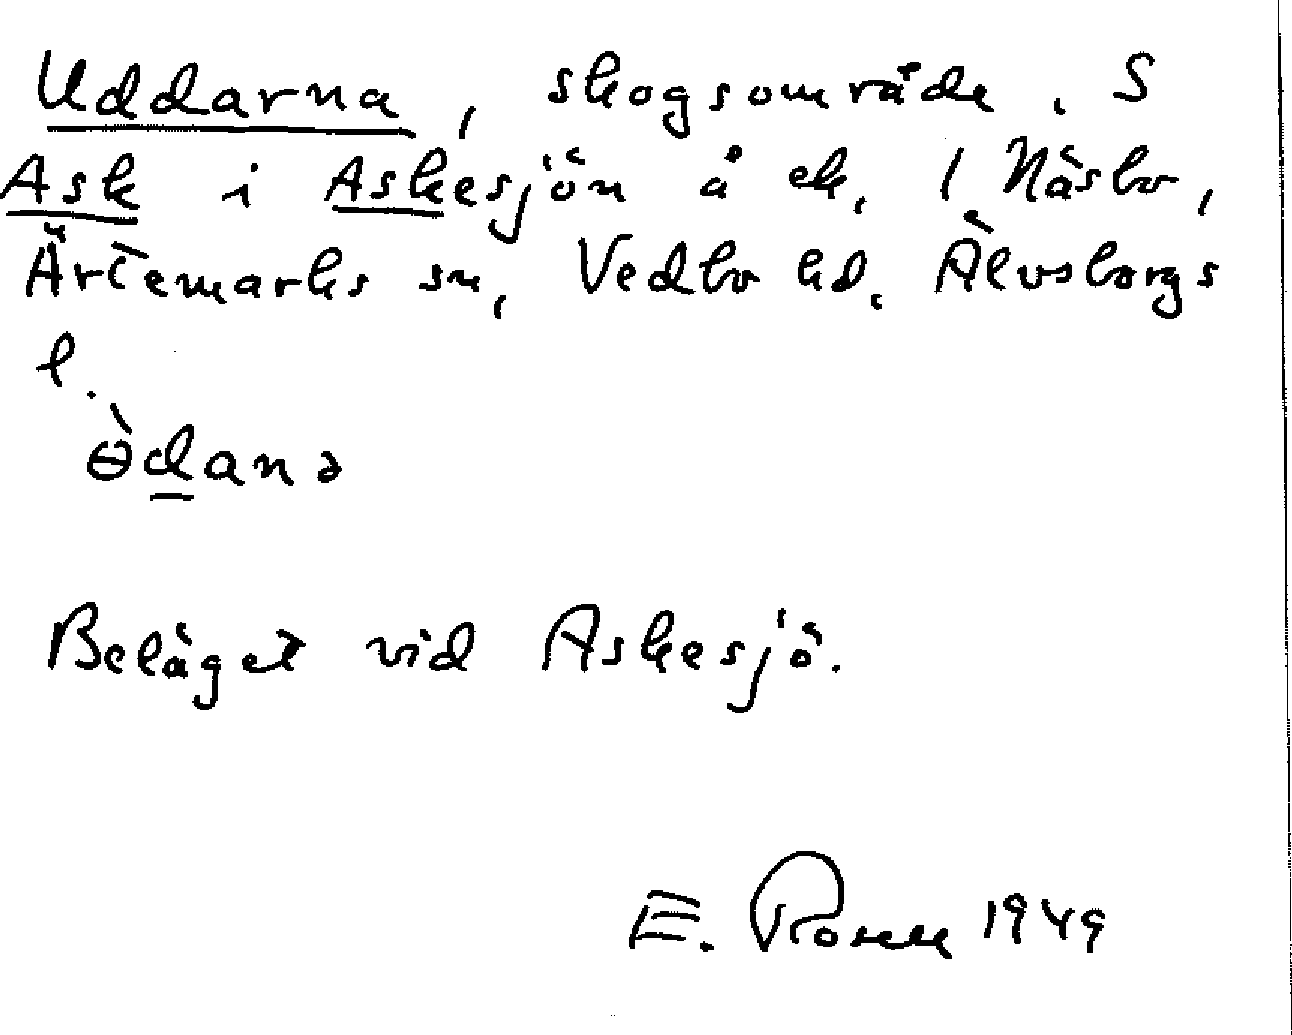 Uddarna, skogsområde, S
Ask i Askesjön å ek. 1 Näsbo,
Ärtemarks sn, Vedbo hd. Älvsborgs
l.
ɵ̀danə
Beläget vid Askesjö.
E. Rosell 1949